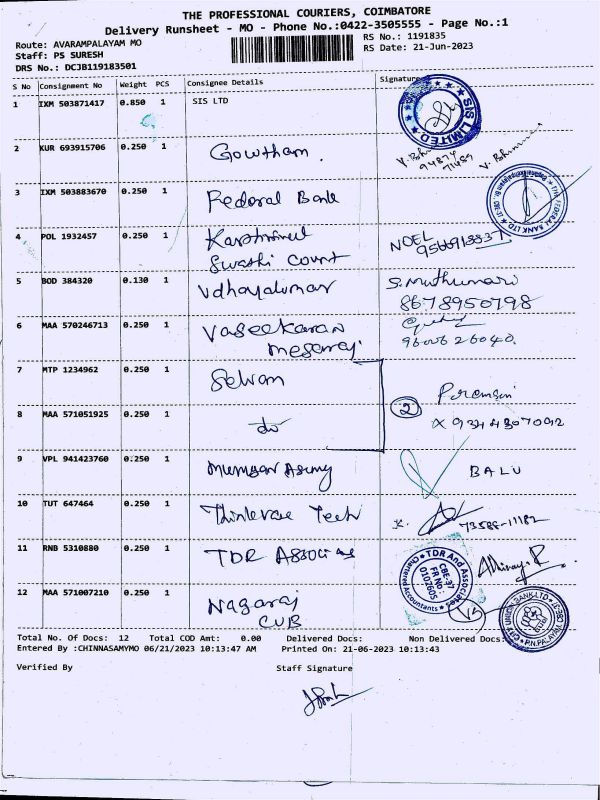 THE PROFESSIONAL COURIERS, COIMBATORE
Delivery Runsheet - MO - Phone No.:0422-3505555 - Page No.:1
Route: AVARAMPALAYAM MO
RS No.: 1191835
Staff: PS SURESH
RS Date: 21-Jun-2023
DRS No.: DCJB119183501
S No Consignment No Weight PCS Consignee Details Signature
1 IXM 503871417 0.850 1 SIS LTD
SIS LIMITED
2 KUR 693915706 0.250 1 Gowtham.
3 IXM 503883670 0.250 1 Federal Bank
4 POL 1932457 0.250 1 NOEL
Court 9566913337
5 BOD 384320 0.130 1 Udhayakumar S. Muthumari
8678950798
6 MAA 570246713 0.250 1 Vaseekaran
96006 26040.
7 MTP 1234962 0.250 1 Selvan
2
8 MAA 571051925 0.250 1 do
9 VPL 941423760 0.250 1 BALU
10 TUT 647464 0.250 1 Tech 73588-11182
11 RNB 5310880 0.250 1 TDR Associates
TDR And Associates
Chartered Accountants
CBE-37
FR No:
010260S
12 MAA 571007210 0.250 1 Nagaraj
CUB
CITY UNION BANK LTD
Total No. Of Docs: 12 Total COD Amt: 0.00 Delivered Docs: Non Delivered Docs:
Entered By :CHINNASAMYMO 06/21/2023 10:13:47 AM Printed On: 21-06-2023 10:13:43
Verified By Staff Signature